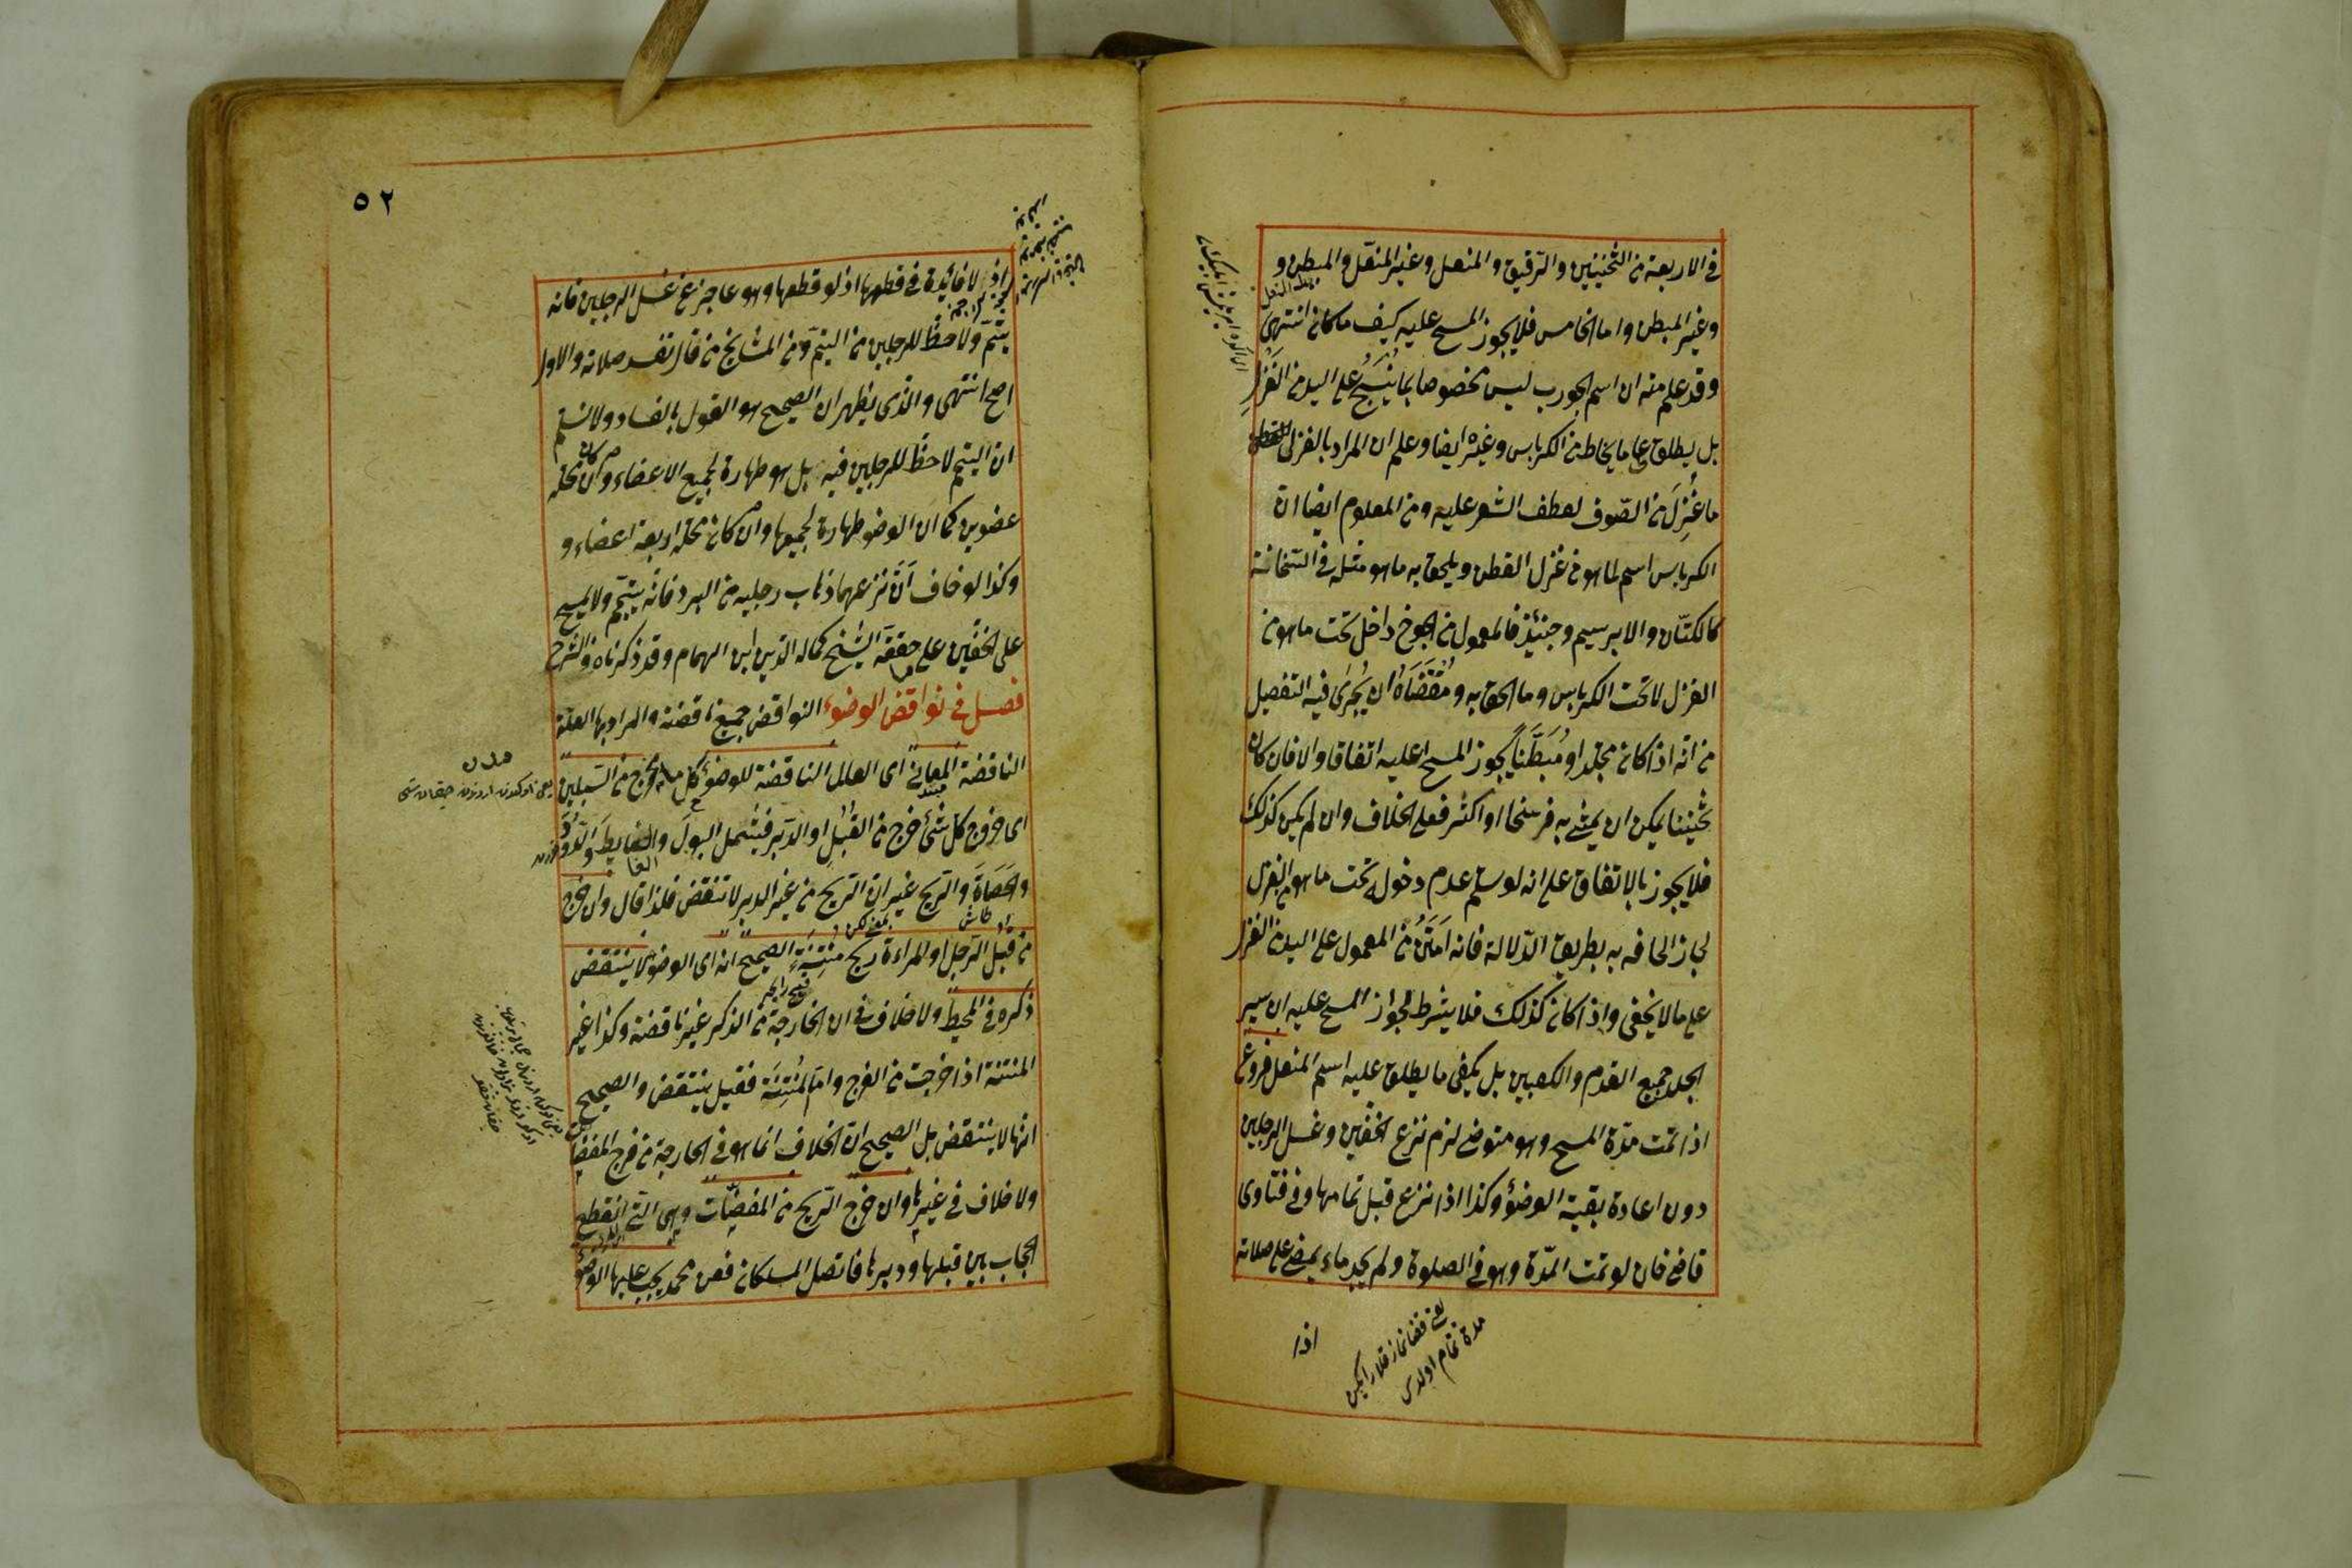 في الاربعة من الثخينين والرقيق والمنعل وغير المنعّل والمبطن و
وغير المبطن واما الخامس فلا يجوز المسح عليه كيف ما كان انتهى
وقد علم منه ان اسم الجورب ليس مخصوصا بما يُنسَجُ على اليد من الغَزْلِ
بل يطلق على ما يخاط من الكرباس وغيره ايضا وعلم ان المراد بالغزل
ما غُزِلَ من الصّوف لعطف الشعر عليه ومن المعلوم ايضا ان
الكرباس اسم لما هو من غزل القطن ويلحق به ما هو مثله في الثخانة
كالكتّان والابرسيم وحينئذ فالمعمول من الجوخ داخل تحت ما هو من
الغزل لا تحت الكرباس وما الحق به ومُقْتَضَاهُ ان يُجرَى فيه التفصيل
من انّه اذا كان مجلدا او مُبَطَّناً يجوز المسح عليه اتفاقا والا فان كان
ثخينا يمكن ان يمشى به فرسخا او اكثر فعلى الخلاف وان لم يكن كذلك
فلا يجوز بالاتفاق على انه لو سلم عدم دخوله تحت ما هو من الغزل
لجاز الحاقه به بطريق الدّلالة فانه امتن من المعمول على اليد من الغزل
على ما لا يخفى واذا كان كذلك فلا يشترط لجواز المسح عليه ان يستر
الجلد جميع القدم والكعبين بل يكفى ما يطلق عليه اسم المنعل فروع
اذا تمت مدّة المسح وهو متوضئ لزم نزع الخفّين وغسل الرجلين
دون اعادة بقية الوضؤ وكذا اذا نزع قبل تمامها وفى فتاوى
قاضى خان لو تمت المدّة وهو فى الصلوة ولم يجد ماء يمضى على صلاته
يعنى قضا نماز قلار ايكن
مدة تمام اولدى
اذا
٥٢
اذ لا فائدة فى قطعها اذ لو قطعها وهو عاجز عن غسل الرجلين فانه
يتيمّم ولا حظّ للرجلين من التيمّم ومن المشايخ من قال تفسد صلاته والاول
اصح انتهى والذى يظهر ان الصحيح هو القول بالفساد ولا نسلم
ان التيمم لا حظّ للرجلين فيه بل هو طهارة لجميع الاعضاء وان كان محله
عضوين كما ان الوضو طهارة لجميعها وان كان محله اربعة اعضاء و
وكذا لو خاف ان نزعهما ذهاب رجليه من البرد فانّه يتيمّم ولا يمسح
على الخفّين على ما حققه الشيخ كمال الدين ابن الهمام وقد ذكرناه فى الشرح
فصل فى نواقض الوضوء النواقض جميع ناقضة والمراد بها العلّة
الناقضة المعانى اى العلل الناقضة للوضوء كل ما خرج من السّبيلين
اى خروج كل شئ خرج من القُبُلِ او الدّبر فيشمل البولَ والغايطَ والدّودَ
والحَصَاةَ والرّيح غير ان الريح من غير الدبر لا تنقض فلذا قال وان خرج
من قُبُل الرّجل او المراءة ريح مُنتِنَة الصحيح انه اى الوضوء لا ينتقض
ذكره فى المحيط ولا خلاف فى ان الخارجة من الذكر غير ناقضة وكذا غير
المنتنة اذا خرجت من الفرج وامّا المُنتِنَة فقيل ينتقض والصحيح
انها لا ينتقض بل الصحيح ان الخلاف انما هو فى الخارجة من فرج المفضاة
ولا خلاف فى غيرها وان خرج الرّيح من المفضّيات وهى التى انقطع
الحجاب بين قبلها ودبرها فاتصل المسلكان فعن محمد يجب عليها الوضؤ